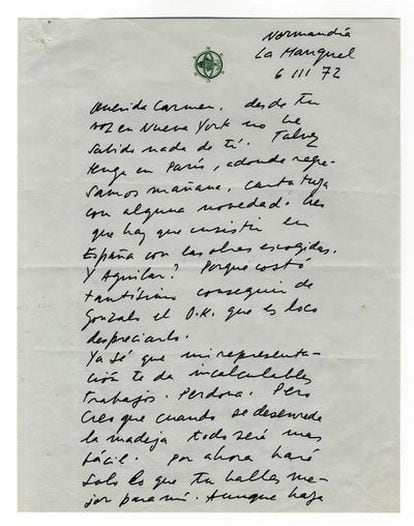 Normandía
La Manquel
6 III 72
Querida Carmen, desde tu
voz en Nueva York no he
sabido nada de ti. Talvez
tenga en París, adonde regre-
samos mañana, carta tuya
con alguna novedad. Creo
que hay que insistir en
España con las obras escogidas.
Y Aguilar? Porque costó
tantísimo conseguir de
Gonzalo el O.K. que es loco
despreciarlo.
Ya sé que mi representa-
ción te da incalculables
trabajos. Perdona. Pero
creo que cuando se desenrede
la madeja todo será más
fácil. Por ahora haré
solo lo que tu halles me-
jor para mí. Aunque haya